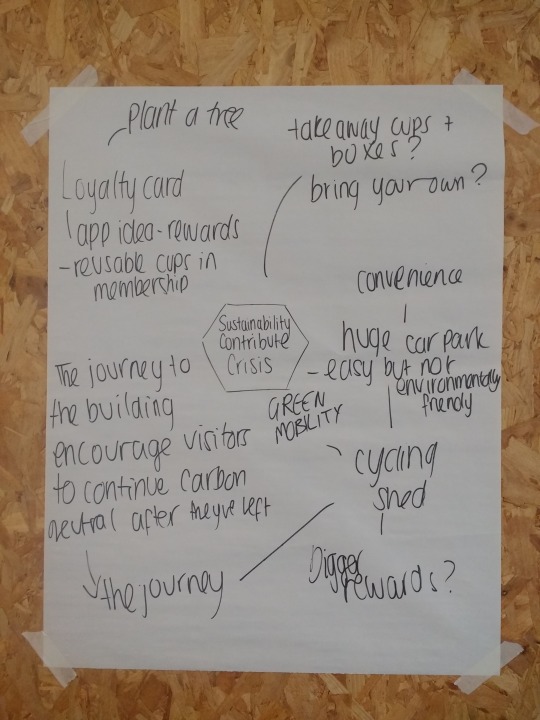 Plant a tree
takeaway cups +
boxes?
bring your own?
Loyalty card
app idea - rewards
- reusable cups in
membership
convenience
huge car park
- easy but not
environmentally
friendly
Sustainability
Contribute
Crisis
GREEN
MOBILITY
The journey to
the building
encourage visitors
to continue carbon
neutral after theyve left
the journey
cycling
shed
Digger
rewards?